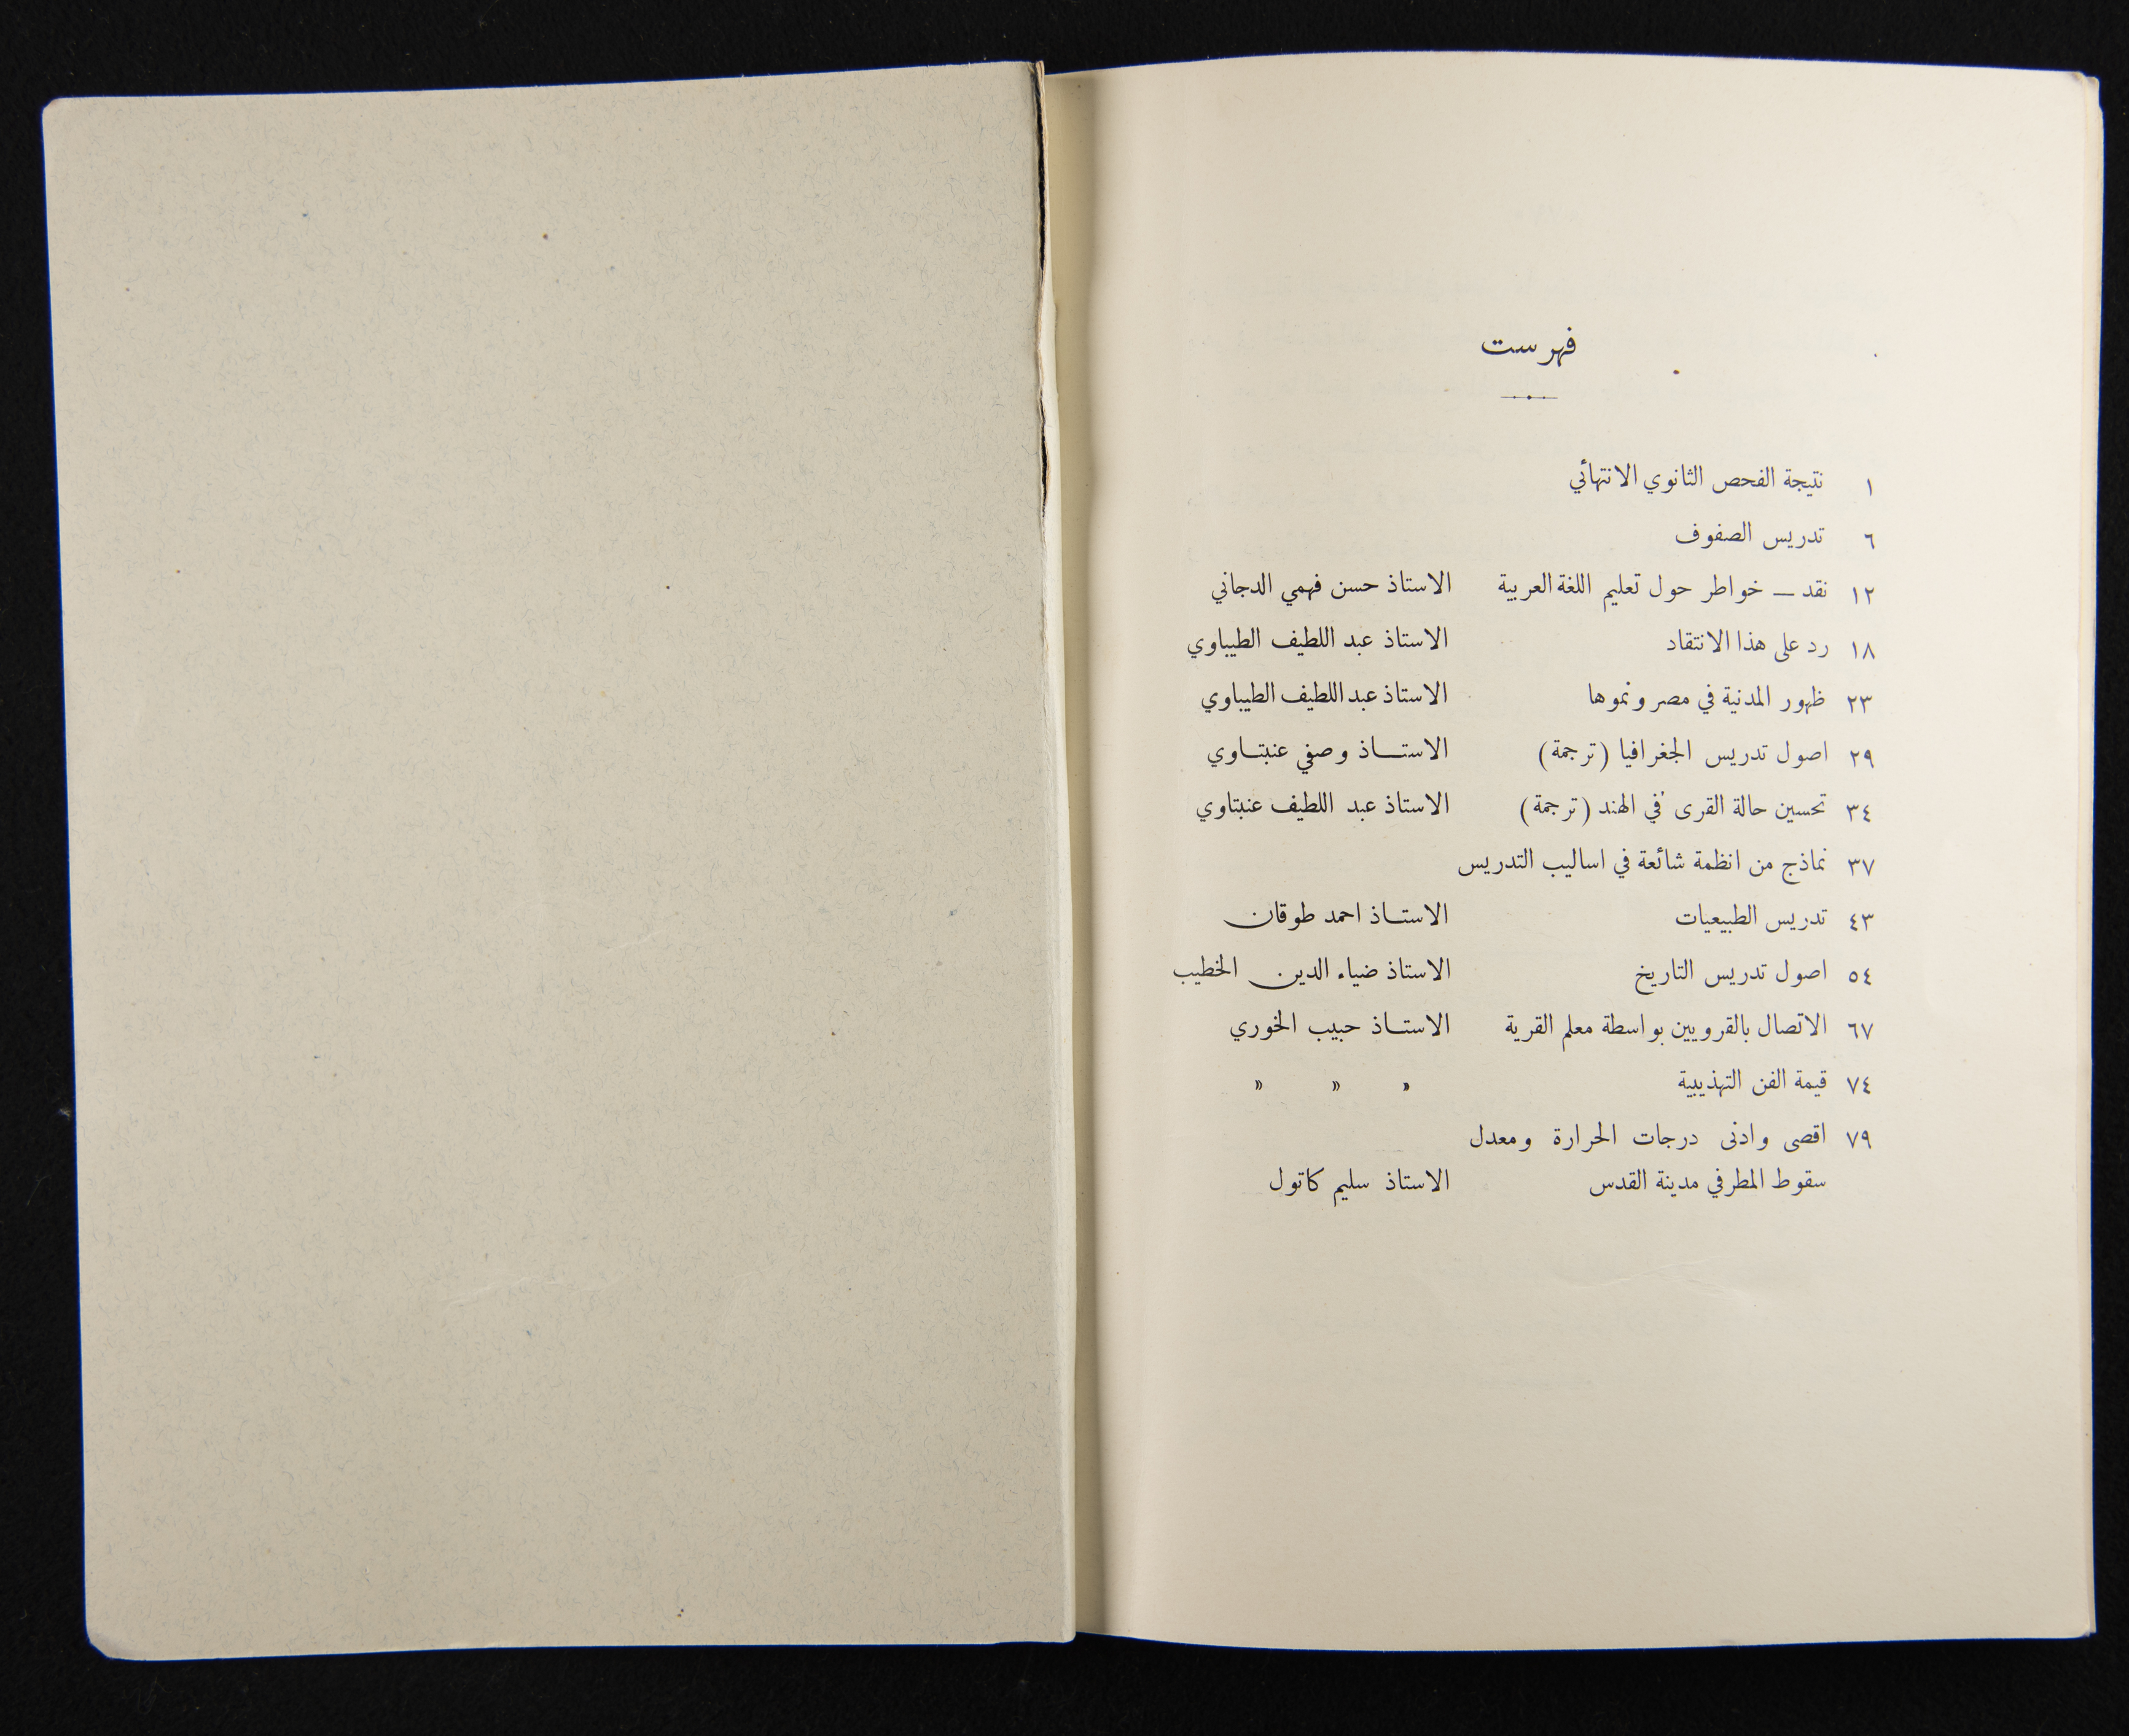 فهرست
١ نتيجة الفحص الثانوي الانتهائي
٦ تدريس الصفوف
١٢ نقد — خواطر حول تعليم اللغة العربية الاستاذ حسن فهمي الدجاني
١٨ رد على هذا الانتقاد الاستاذ عبد اللطيف الطيباوي
٢٣ ظهور المدنية في مصر ونموها الاستاذ عبد اللطيف الطيباوي
٢٩ اصول تدريس الجغرافيا (ترجمة) الاستــاذ وصفي عنبتــاوي
٣٤ تحسين حالة القرى في الهند (ترجمة) الاستاذ عبد اللطيف عنبتاوي
٣٧ نماذج من انظمة شائعة في اساليب التدريس
٤٣ تدريس الطبيعيات الاستــاذ احمد طوقان
٥٤ اصول تدريس التاريخ الاستاذ ضياء الدين الخطيب
٦٧ الاتصال بالقرويين بواسطة معلم القرية الاستــاذ حبيب الخوري
٧٤ قيمة الفن التهذيبية » » »
٧٩ اقصى وادنى درجات الحرارة ومعدل
سقوط المطر في مدينة القدس الاستاذ سليم كاتول